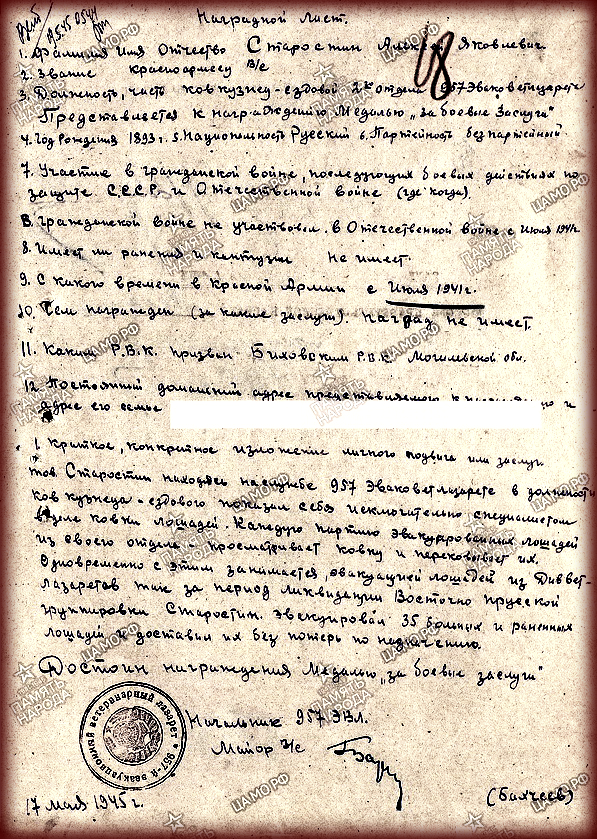 Наградной Лист.
1. Фамилия Имя Отчество Старостин Алексей Яковлевич.
2. Звание красноармеец в/с
3. Должность, часть ковкузнец-ездовой 2го отдел 957 Эваковетлазарета
Представляется к награждению Медалью „за боевые Заслуги"
4. Год Рождения 1893 г. 5. Национальность Русский 6. Партейность безпартейный
7. Участие в гражданской войне, последующих боевых действиях по
защите С.С.С.Р. и Отечественной войне (где когда).
В гражданской войне не участвовал. в Отечественной войне с Июля 1941г
8. Имеет ли ранения и контузии не имеет.
9. С какого времени в Красной Армии с Июля 1941г.
10. Чем награжден (за какие заслуги). Наград не имеет.
11. Каким Р.В.К. призван - Биховским Р.В.К. Могилевской обл.
12. Постоянный домашний адрес представляемого к и
адрес его семьи
1. Краткое, конкретное изложение личного подвига или заслуг
тов Старостин находясь на службе 957 Эваковетлазарете в должности
ковкузнеца-ездового показал себя исключительно специалистом
в деле ковки лошадей. Каждую партию эвакуированных лошадей
из своего отдела - просматривает ковку и перековывает их.
Одновременно с этим занимается эвакуацией лошадей из Дивет-
лазаретов так за период ликвидации Восточно прусской
группировки Старостин. Эвакуировал 35 больных и раненных
лошадей и доставил их без потерь по назначению.
Достоин награждения Медалью „за боевые заслуги"
Начальник 957 ЭВЛ.
Майор в/с
(Бахчеев)
17 мая 1945 г.
957-й эвакуационный ветеринарный лазарет
ЦАМО.РФ
ПАМЯТЬ НАРОДА